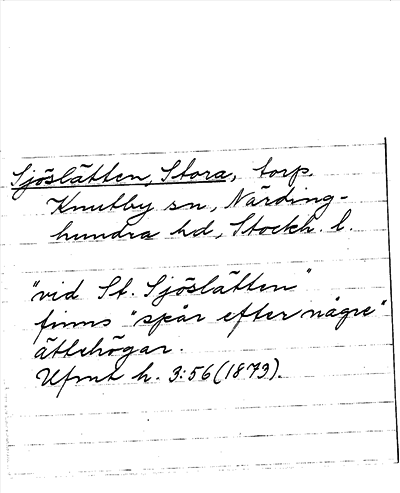 Sjöslätten, Stora, torp.
Knutby sn, Närding-
hundra hd, Stockh. l.
"vid St. Sjöslätten"
finns "spår efter några"
ättehögar.
Ufmt h. 3:56 (1873).